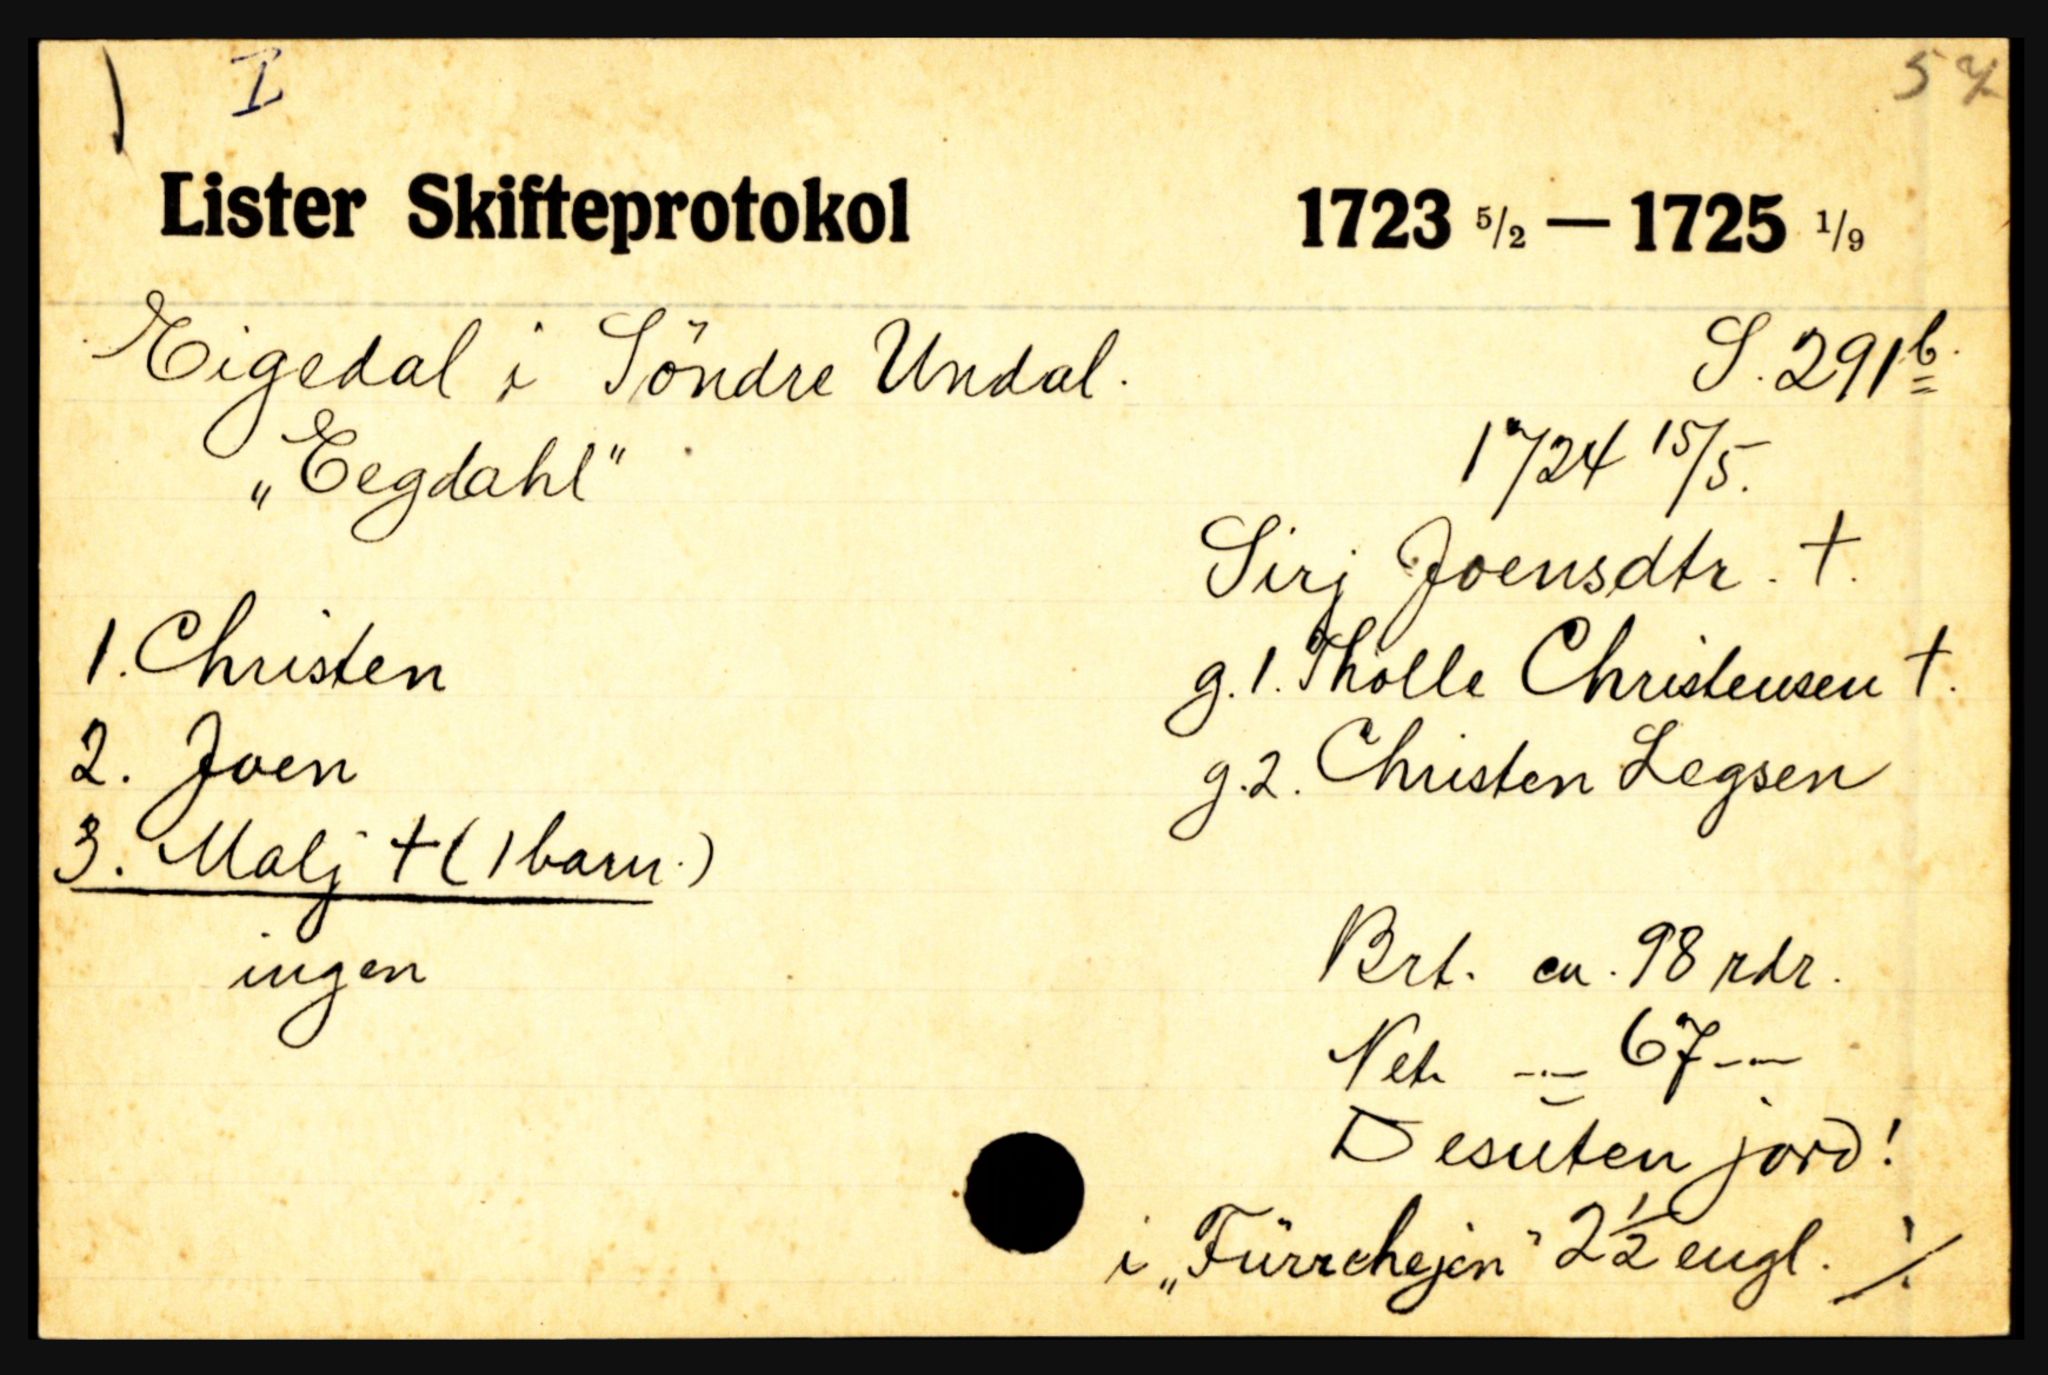 I
57
Lister Skifteprotokol 1723 5/2 — 1725 1/9
Eigedal i Söndre Undal. S. 291b
„Eegdahl" 1724 15/5.
Sirj Joensdtr. †.
1. Christen g.1. Tholle Christensen †.
2. Joen g.2. Christen Legsen
3. Malj † (1 barn.)
ingen Brt. ca. 98 rdr.
Net. -"- 67 -"-
Desuten jord!
i „Fürrehejen" 2 1/2 engl. ./.